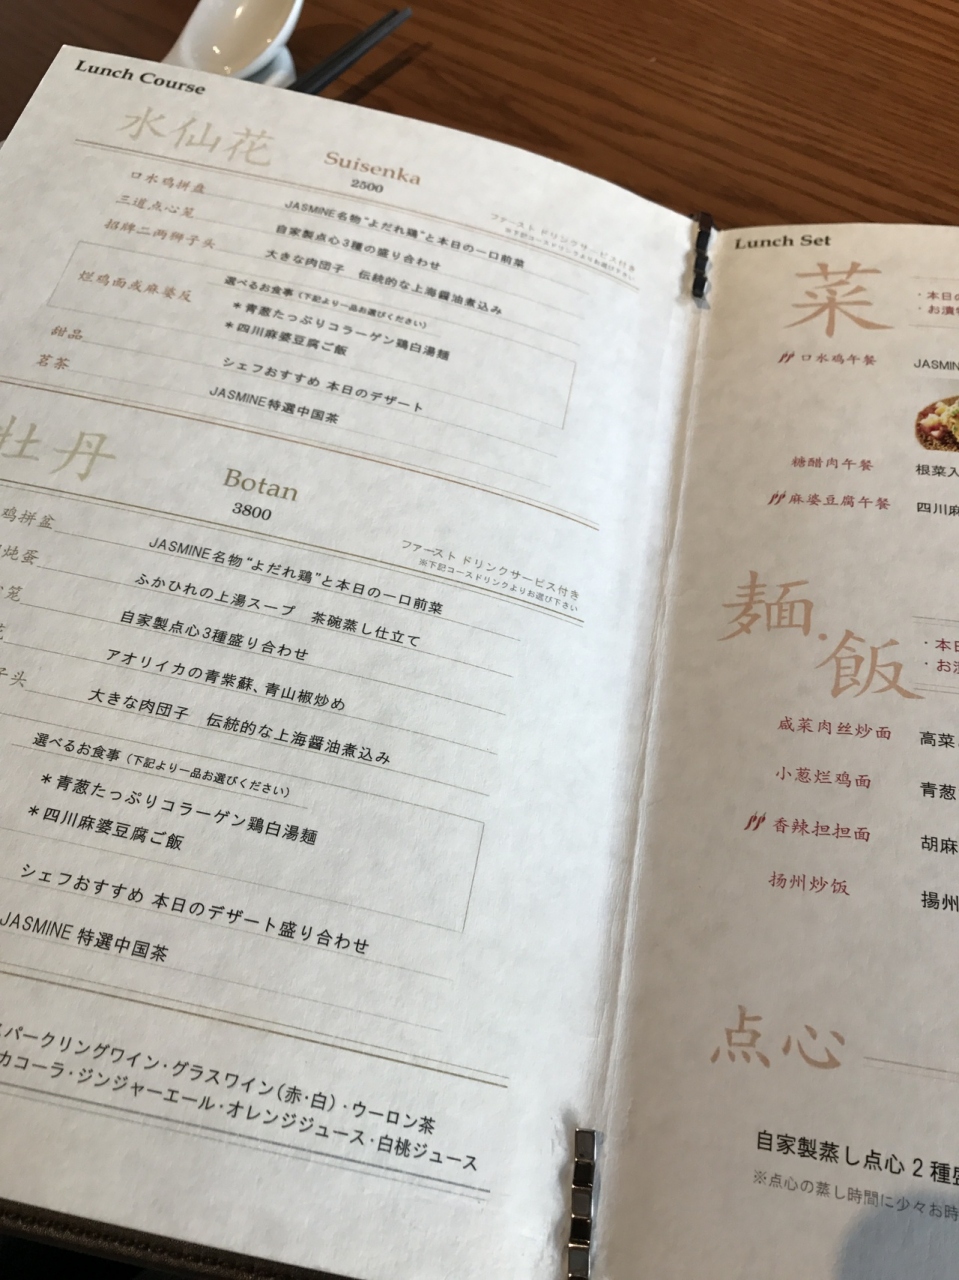 Lunch Course
水仙花
Suisenka
2500
ファースト ドリンクサービス付き
※下記コースドリンクよりお選び下さい
口水鸡拼盘 JASMINE名物“よだれ鶏”と本日の一口前菜
三道点心笼 自家製点心3種の盛り合わせ
招牌二两狮子头 大きな肉団子 伝統的な上海醤油煮込み
烂鸡面或麻婆反 選べるお食事（下記より一品お選びください）
＊青葱たっぷりコラーゲン鶏白湯麺
＊四川麻婆豆腐ご飯
甜品 シェフおすすめ 本日のデザート
茗茶 JASMINE特選中国茶
牡丹
Botan
3800
ファースト ドリンクサービス付き
※下記コースドリンクよりお選び下さい
鸡拼盆 JASMINE名物“よだれ鶏”と本日の一口前菜
炖蛋 ふかひれの上湯スープ 茶碗蒸し仕立て
笼 自家製点心3種盛り合わせ
アオリイカの青紫蘇、青山椒炒め
子头 大きな肉団子 伝統的な上海醤油煮込み
選べるお食事（下記より一品お選びください）
＊青葱たっぷりコラーゲン鶏白湯麺
＊四川麻婆豆腐ご飯
シェフおすすめ 本日のデザート盛り合わせ
JASMINE 特選中国茶
パークリングワイン・グラスワイン（赤・白）・ウーロン茶
カコーラ・ジンジャーエール・オレンジジュース・白桃ジュース
Lunch Set
菜
・本日の
・お漬物
口水鸡午餐 JASMIN
糖醋肉午餐 根菜入
麻婆豆腐午餐 四川麻
麺・飯
・本日
・お漬
咸菜肉丝炒面 高菜
小葱烂鸡面 青葱
香辣担担面 胡麻
扬州炒饭 揚州
点心
自家製蒸し点心 2 種盛
※点心の蒸し時間に少々お時